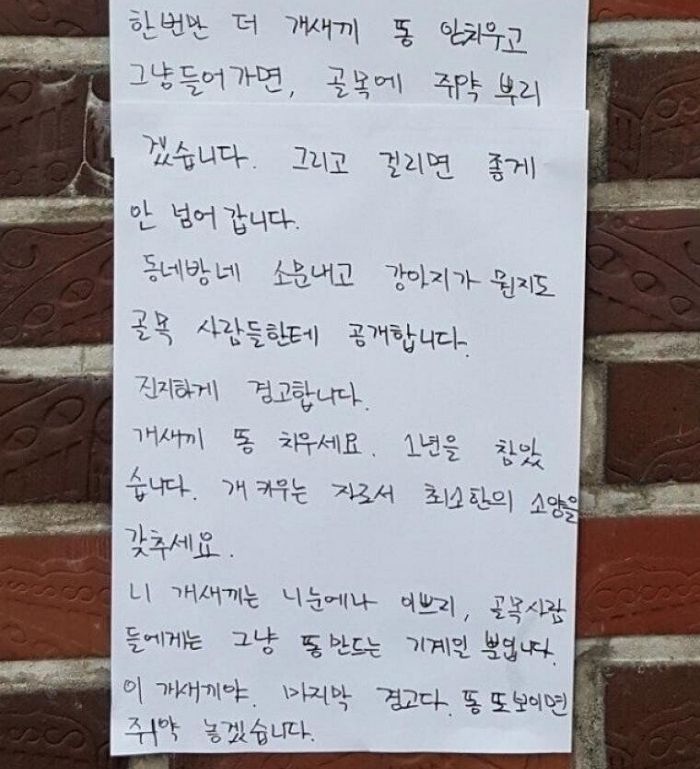 한번만 더 개새끼 똥 안치우고
그냥들어가면, 골목에 쥐약 뿌리
겠습니다. 그리고 걸리면 좋게
안 넘어갑니다.
동네방네 소문내고 강아지가 뭔지도
골목 사람들한테 공개합니다.
진지하게 경고합니다.
개새끼 똥 치우세요. 1년을 참았
습니다. 개 키우는 자로서 최소한의 소양을
갖추세요.
니 개새끼는 니눈에나 이쁘리, 골목사람
들에게는 그냥 똥만드는 기계일 뿐입니다.
이 개새끼야. 마지막 경고다. 똥 또보이면
쥐약 놓겠습니다.